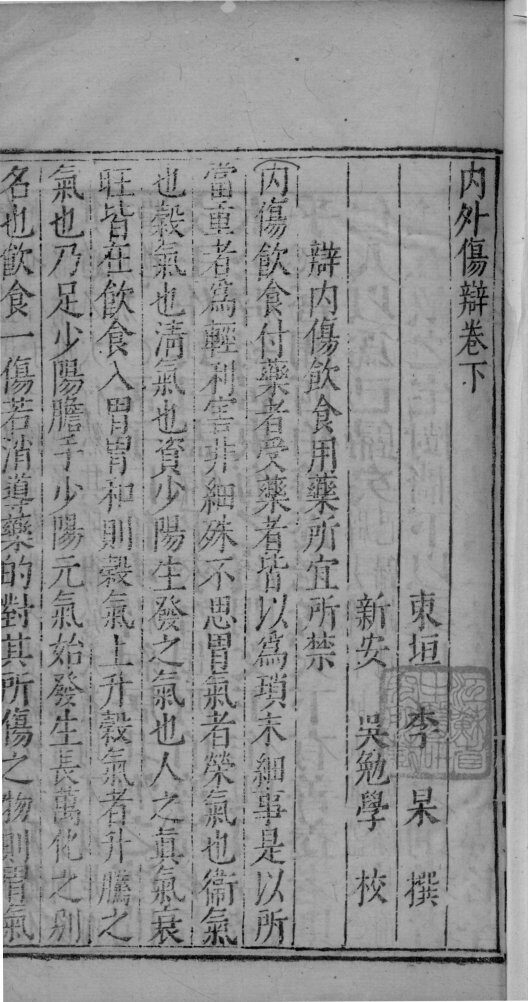 内外傷辯卷下
東垣 李杲 撰
新安 吳勉學 校
辯内傷飲食用藥所宜所禁
内傷飲食付藥者受藥者皆以為瑣末細事是以所
當重者為輕利害非細殊不思胃氣者榮氣也衞氣
也穀氣也清氣也資少陽生發之氣也人之真氣衰
旺皆在飲食入胃胃和則穀氣上升穀氣者升騰之
氣也乃足少陽膽手少陽元氣始發生長萬化之别
名也飲食一傷若消導藥的對其所傷之物則胃氣